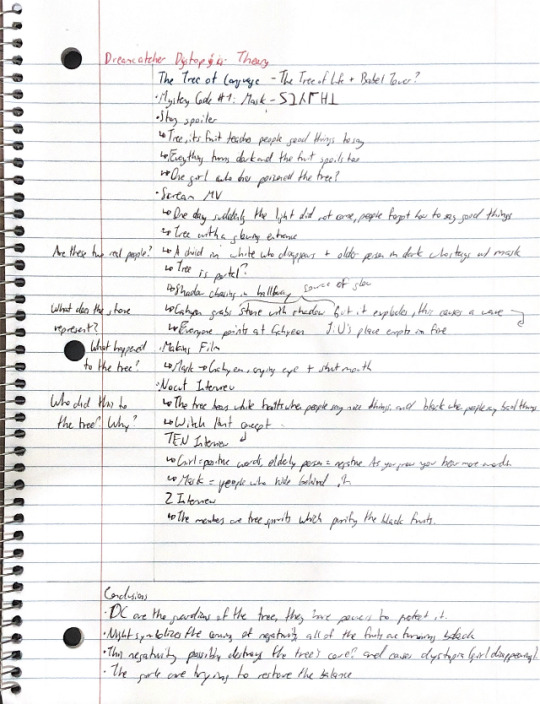 Dreamcatcher Dystopia Theory
The Tree of Language - The Tree of Life + Babel Tower?
• Mystery Code #1: Mask -
• Story spoiler
↳ Tree, its fruit teaches people good things to say
↳ Everything turns dark and the fruit spoils too
↳ One girl who has poisoned the tree?
• Scream MV
↳ One day suddenly the light did not come, people forgot how to say good things
↳ Tree with a glowing entrance
Are these two real people? ↳ A child in white who disappears + older person in dark clothing w/ mask
↳ Tree is portal?
↳ Shadow chasing in hallway, source of glow
What does the stone ↳ Gahyeon grabs stone with shadow but it explodes, this causes a wave
represent? ↳ Everyone points at Gahyeon JiU's place empty on fire
What happened • Making Film
to the tree? ↳ Mask → Gahyeon, crying eye + shut mouth
• Nocut Interview
Who did this to ↳ The tree bears white fruits when people say nice things and black when people say bad things
the tree? Why? ↳ Witch Hunt concept
TEN Interview
↳ Girl = positive words, elderly person = negative. As you grow you hear more words.
↳ Mask = people who hide behind it
2 Interview
↳ The members are tree spirits which purify the black fruits.
Conclusions
• DC are the guardians of the tree, they have powers to protect it.
• Night symbolizes the coming of negativity all of the fruits are turning black
• This negativity possibly destroys the tree's core? and causes dystopia (girl disappearing)
• The girls are trying to restore the balance